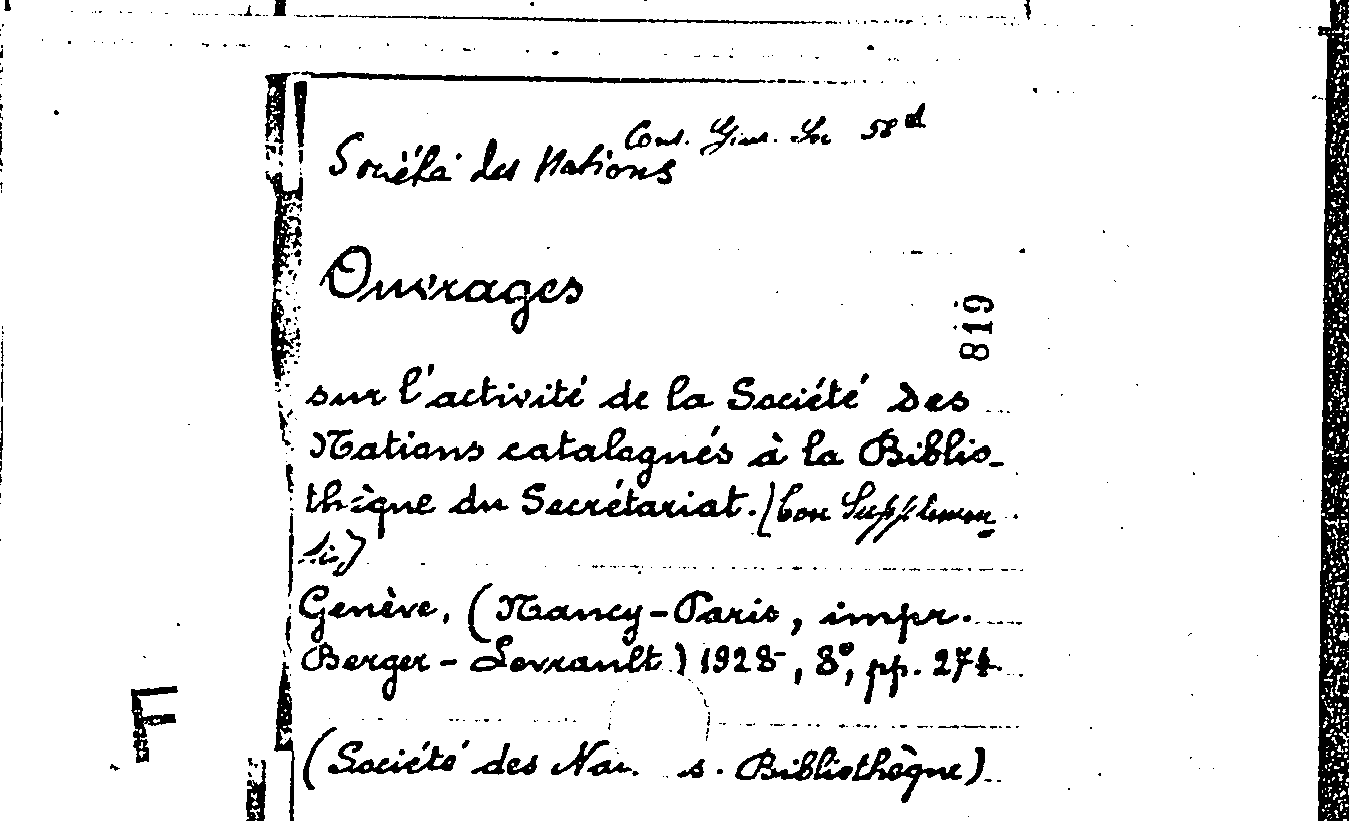 Cons. Giur. Soc 58 d
Société des Nations
Ouvrages
819
sur l'activité de la Société des
Nations catalogués à la Biblio-
thèque du Secrétariat. (con Supplemen-
ti)
Genève, (Nancy-Paris, impr.
Berger-Levrault) 1928, 8°, pp. 274
(Société des Na s. Bibliothèque)
F